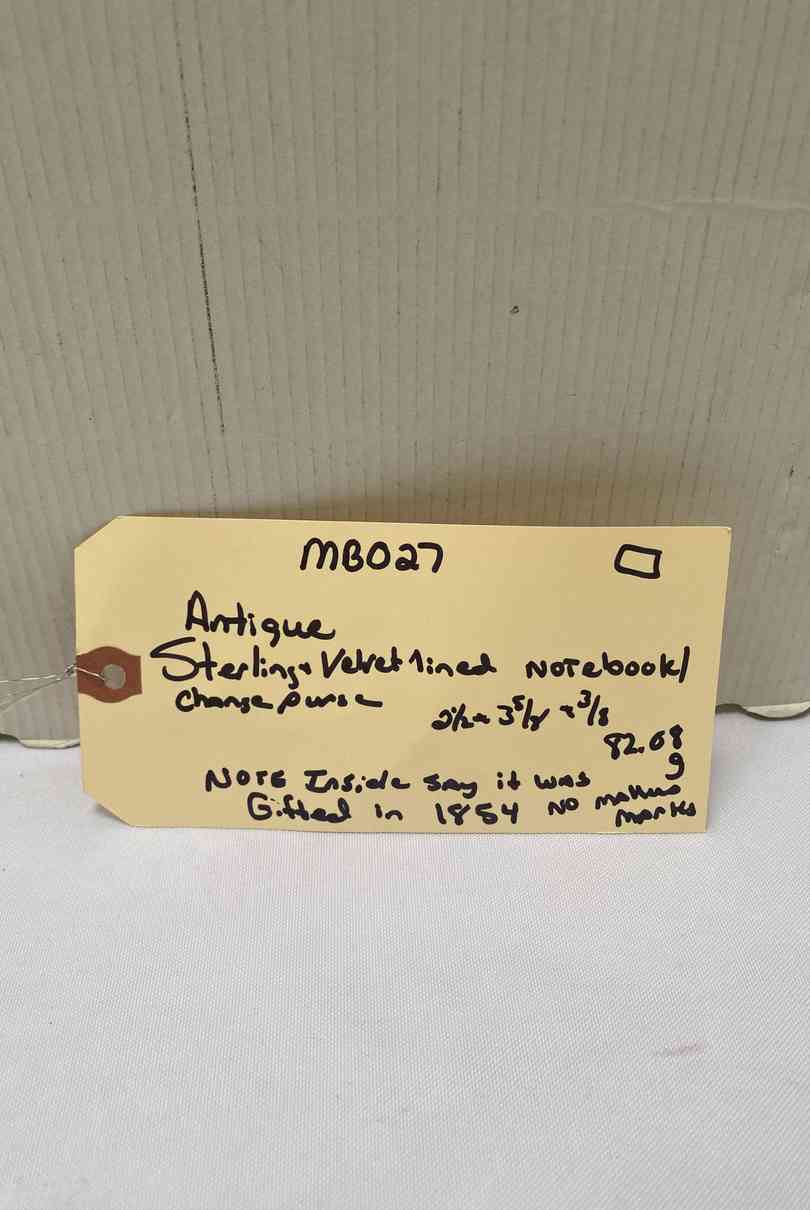 MB027
Antique
Sterling + Velvet lined Notebook/
Change purse
2½ x 3 5/8 x 3/8
82.08
g
NOTE Inside say it was
Gifted in 1854 NO makers
marks